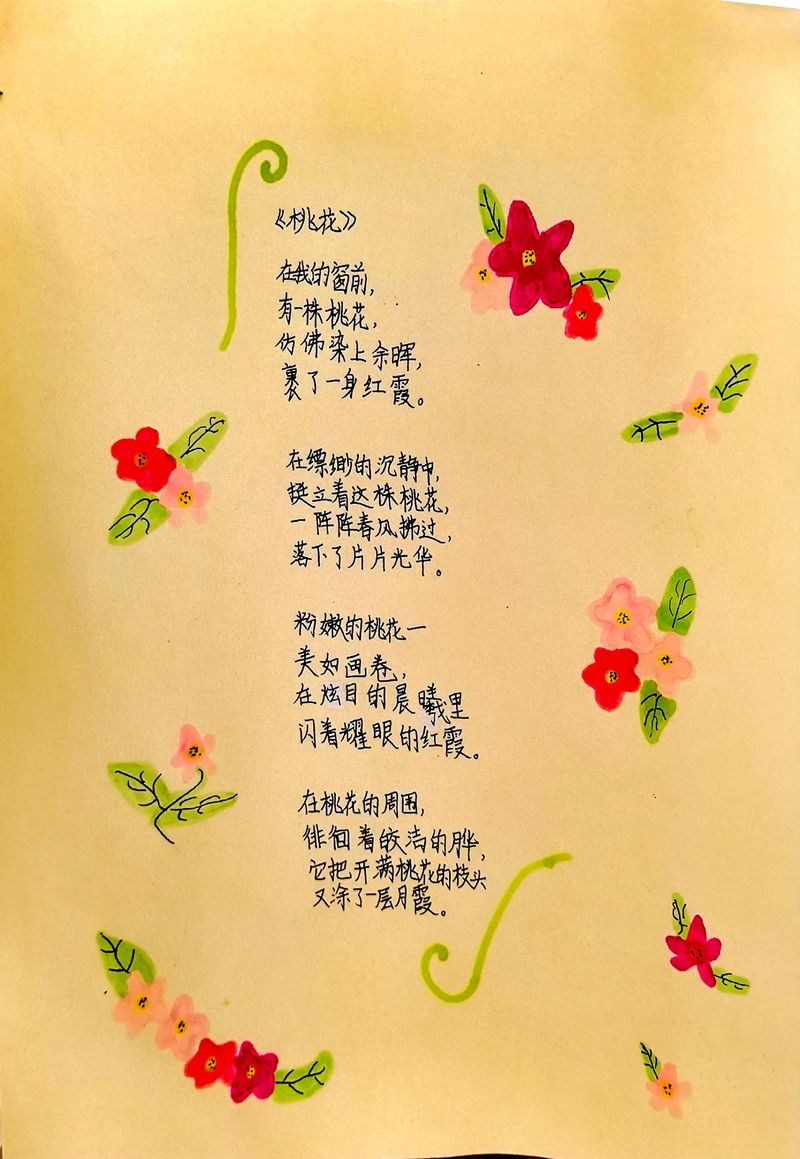 《桃花》
在我的窗前，
有一株桃花，
仿佛染上余晖，
裹了一身红霞。
在缥缈的沉静中，
挺立着这株桃花，
一阵阵春风拂过，
落下了片片光华。
粉嫩的桃花一
美如画卷，
在炫目的晨曦里
闪着耀眼的红霞。
在桃花的周围，
徘徊着皎洁的月华，
它把开满桃花的枝头
又涂了一层月霞。